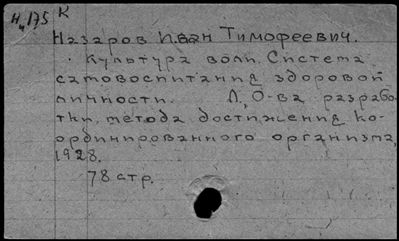 Н4175 К
Назаров Иван Тимофеевич.
Культура воли. Система
самовоспитания здоровой
личности. Л, О-ва разрабо-
тки, метода достижения ко-
ординированного организма,
1928.
78 стр.